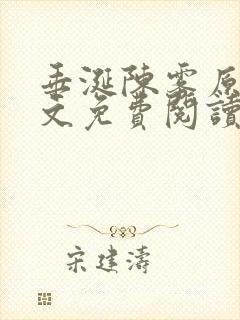 垂涎陳雾原
文免費閱讀
宋建濤